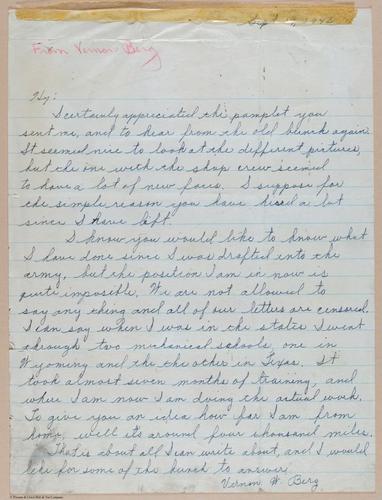 Sept 1942
From Vernon Berg
Hy:
I certainly appreciated the pamplet you
sent me, and to hear from the old bunch again.
It seemed nice to look at the different pictures,
but the one with the shop crew seemed
to have a lot of new faces. I suppose for
the simple reason you have hired a lot
since I have left.
I know you would like to know what
I have done since I was drafted into the
army, but the position I am in now is
quite imposible. We are not allowed to
say any thing and all of our letters are censored.
I can say when I was in the states I went
through two mechanical schools, one in
Wyoming and the the other in Texas. It
took almost seven months of training, and
where I am now I am doing the actual work.
To give you an idea how far I am from
home, well its around four thousand miles.
That is about all I can write about, and I would
like for some of the bunch to answer.
Vernon W. Berg